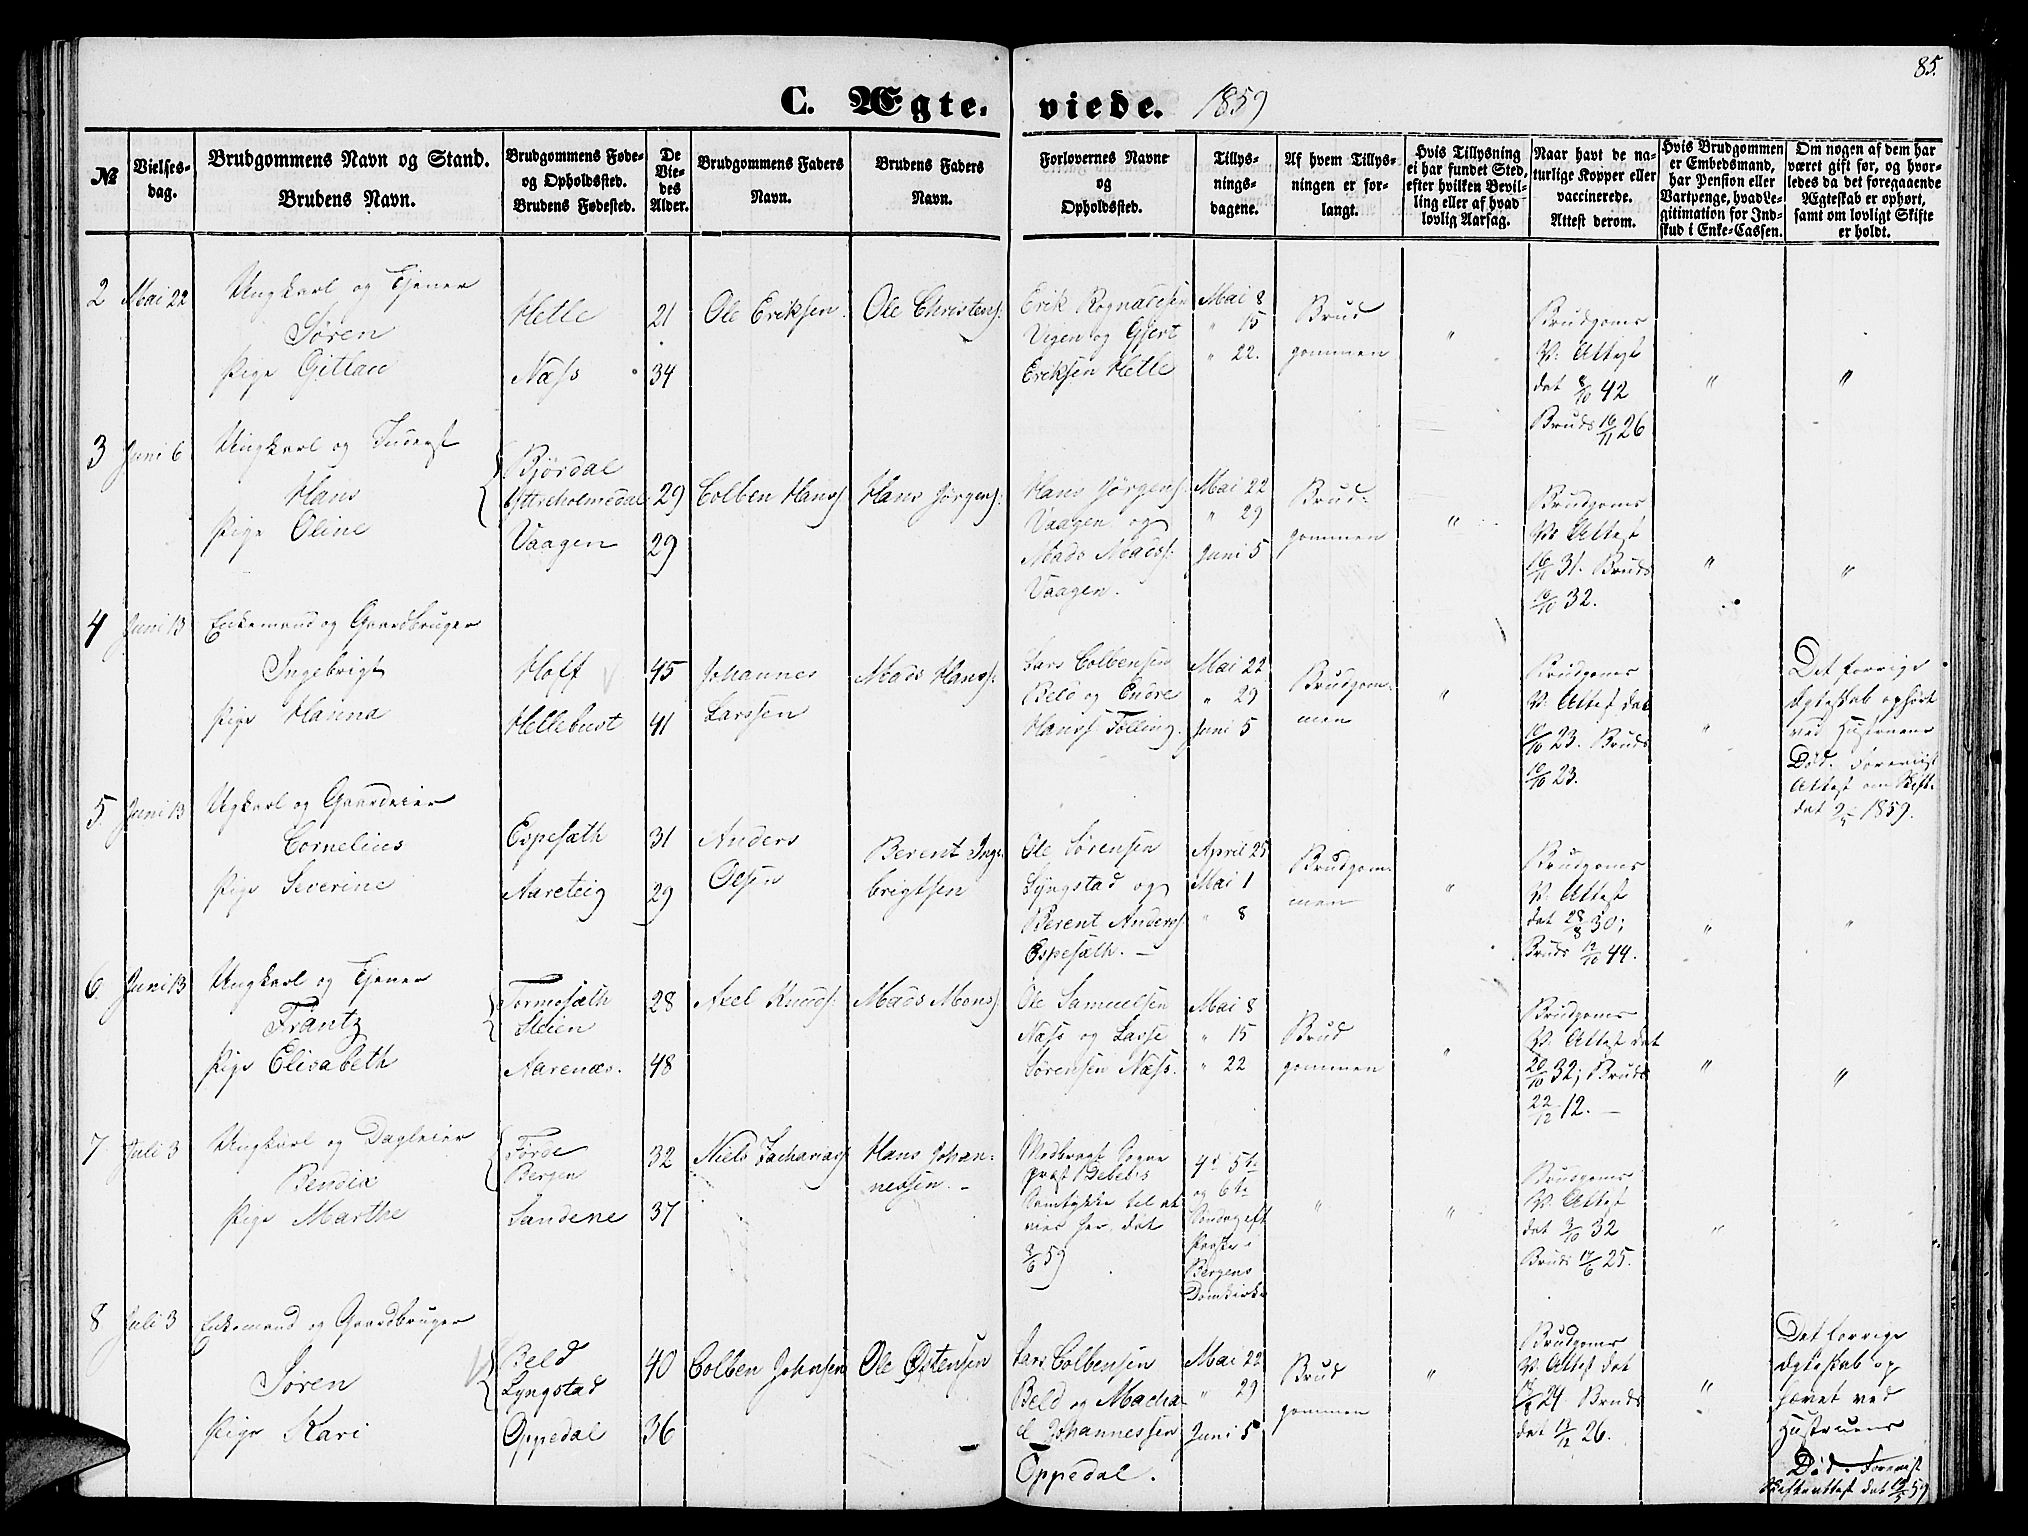 85.
C. Ægte- viede. 1859
№
Vielses-
dag.
Brudgommens Navn og Stand.
Brudens Navn.
Brudgommens Føde-
og Opholdssted.
Brudens Fødested.
De
Vie-
des
Alder.
Brudgommens Faders
Navn.
Brudens Faders
Navn.
Forlovernes Navne
og
Opholdssted.
Tillys-
nings-
dagene.
Af hvem Tillys-
ningen er for-
langt.
Hvis Tillysning
ei har fundet Sted,
efter hvilken Bevil-
ling eller af hvad
lovlig Aarsag.
Naar havt de na-
turlige Kopper eller
vaccinerede.
Attest derom.
Hvis Brudgommen
er Embedsmand,
har Pension eller
Vartpenge, hvad Le-
gitimation for Ind-
skud i Enke-Cassen.
Om nogen af dem har
været gift før, og hvor-
ledes da det foregaaende
Ægteskab er ophørt,
samt om lovligt Skifte
er holdt.
2 Mai 22
Ungkarl og Tjener
Søren
Pige Gitlau
Helle
Næss
21
34
Ole Eriksen
Ole Christens:
Erik Rognaldsen
Vigen og Gjert
Eriksen Helle
Mai 8
" 15
" 22.
Brud
gommen
"
Brudgoms
V: Attest
dat 8/10 42
Bruds 16/11 26
"
"
3 Juni 6
Ungkarl og Inderst
Hans
Pige Oline
Bjørdal
Yttreholmedal
Vaagen
29
29
Colben Hanss
Hans Jørgens:
Hans Jørgens:
Vaagen og
Mads Madss:
Vaagen.
Mai 22
" 29
Juni 5
Brud-
gommen
"
Brudgoms
V: Attest
16/11 31. Bruds
/10 32.
"
"
4 Juni 13
Enkemand og Gaardbruger
Ingebrigt
Pige Hanna
Hoff
Hellebust
45
41
Johannes
Larssen
Mads Hanss:
Lars Colbensen
Beld og Endre
Hanss Tølling.
Mai 22
" 29
Juni 5
Brudgom-
men
"
Brudgoms
V: Attest dat
/10 23. Bruds
/10 23.
"
Det forrige
Ægteskab ophørt
ved Hustruens
Død. Foreviist
Attest om Skift.
dat 2/5 1859.
5. Juni 13
Ugkarl og Gaardeier
Cornelius
Pige Severine
Espesæth
Aareteig
31
29
Anders
Olsen
Berent Inge-
brigtsen
Ole Sørensen
Lyngstad og
Berent Anderss
Espesæth. —
April 25
Mai 1
" 8
Brudgom-
men
"
Brudgoms
V: Attest
dat 28/8 30;
Bruds 12/10 44.
"
"
6 Juni 13
Ungkarl og Tjener
Frantz
Pige Elisabeth
Tormosæth
Steien
Aarenæs.
28
48
Axel Knuds:
Mads Mons:
Ole Samuelsen
Næss og Lasse
Sørensen Næss.
Mai 8
" 15
" 22
Brud
gommen
"
Brudgoms
V. Attest dat
20/10 32; Bruds
22/12 12. —
"
"
7 Juli 3
Ungkarl og Dagleier
Bendix
Pige Marthe
Førde
Bergen
Sandene
32
37
Niels Zachariass
Hans Johan-
nessen. —
Medbragt Sogne
præst
Samtykke til at
vies her, dat
/6 59
4d 5te
og 6te
Søndag eft
Paaske i
Bergens
Domkirke
"
"
Brudgoms
V: Attest
dat 3/10 32
Bruds 17/6 25.
"
"
8 Juli 3
Enkemand og Gaardbruger
Søren
Pige Kari
Beld
Lyngstad
Oppedal
40
36
Colben Johnsen
Ole Østensen
Lars Colbensen
Beld og Macha-
el Johannessen
Oppedal.
Mai 22
" 29
Juni 5
Brud
gommen
"
Brudgoms
V: Attest dat
24 Bruds
dat 13/12 26.
"
Det forrige
Ægteskab op
hævet ved
Hustruens
Død. Forevist
Skifteattest dat 59